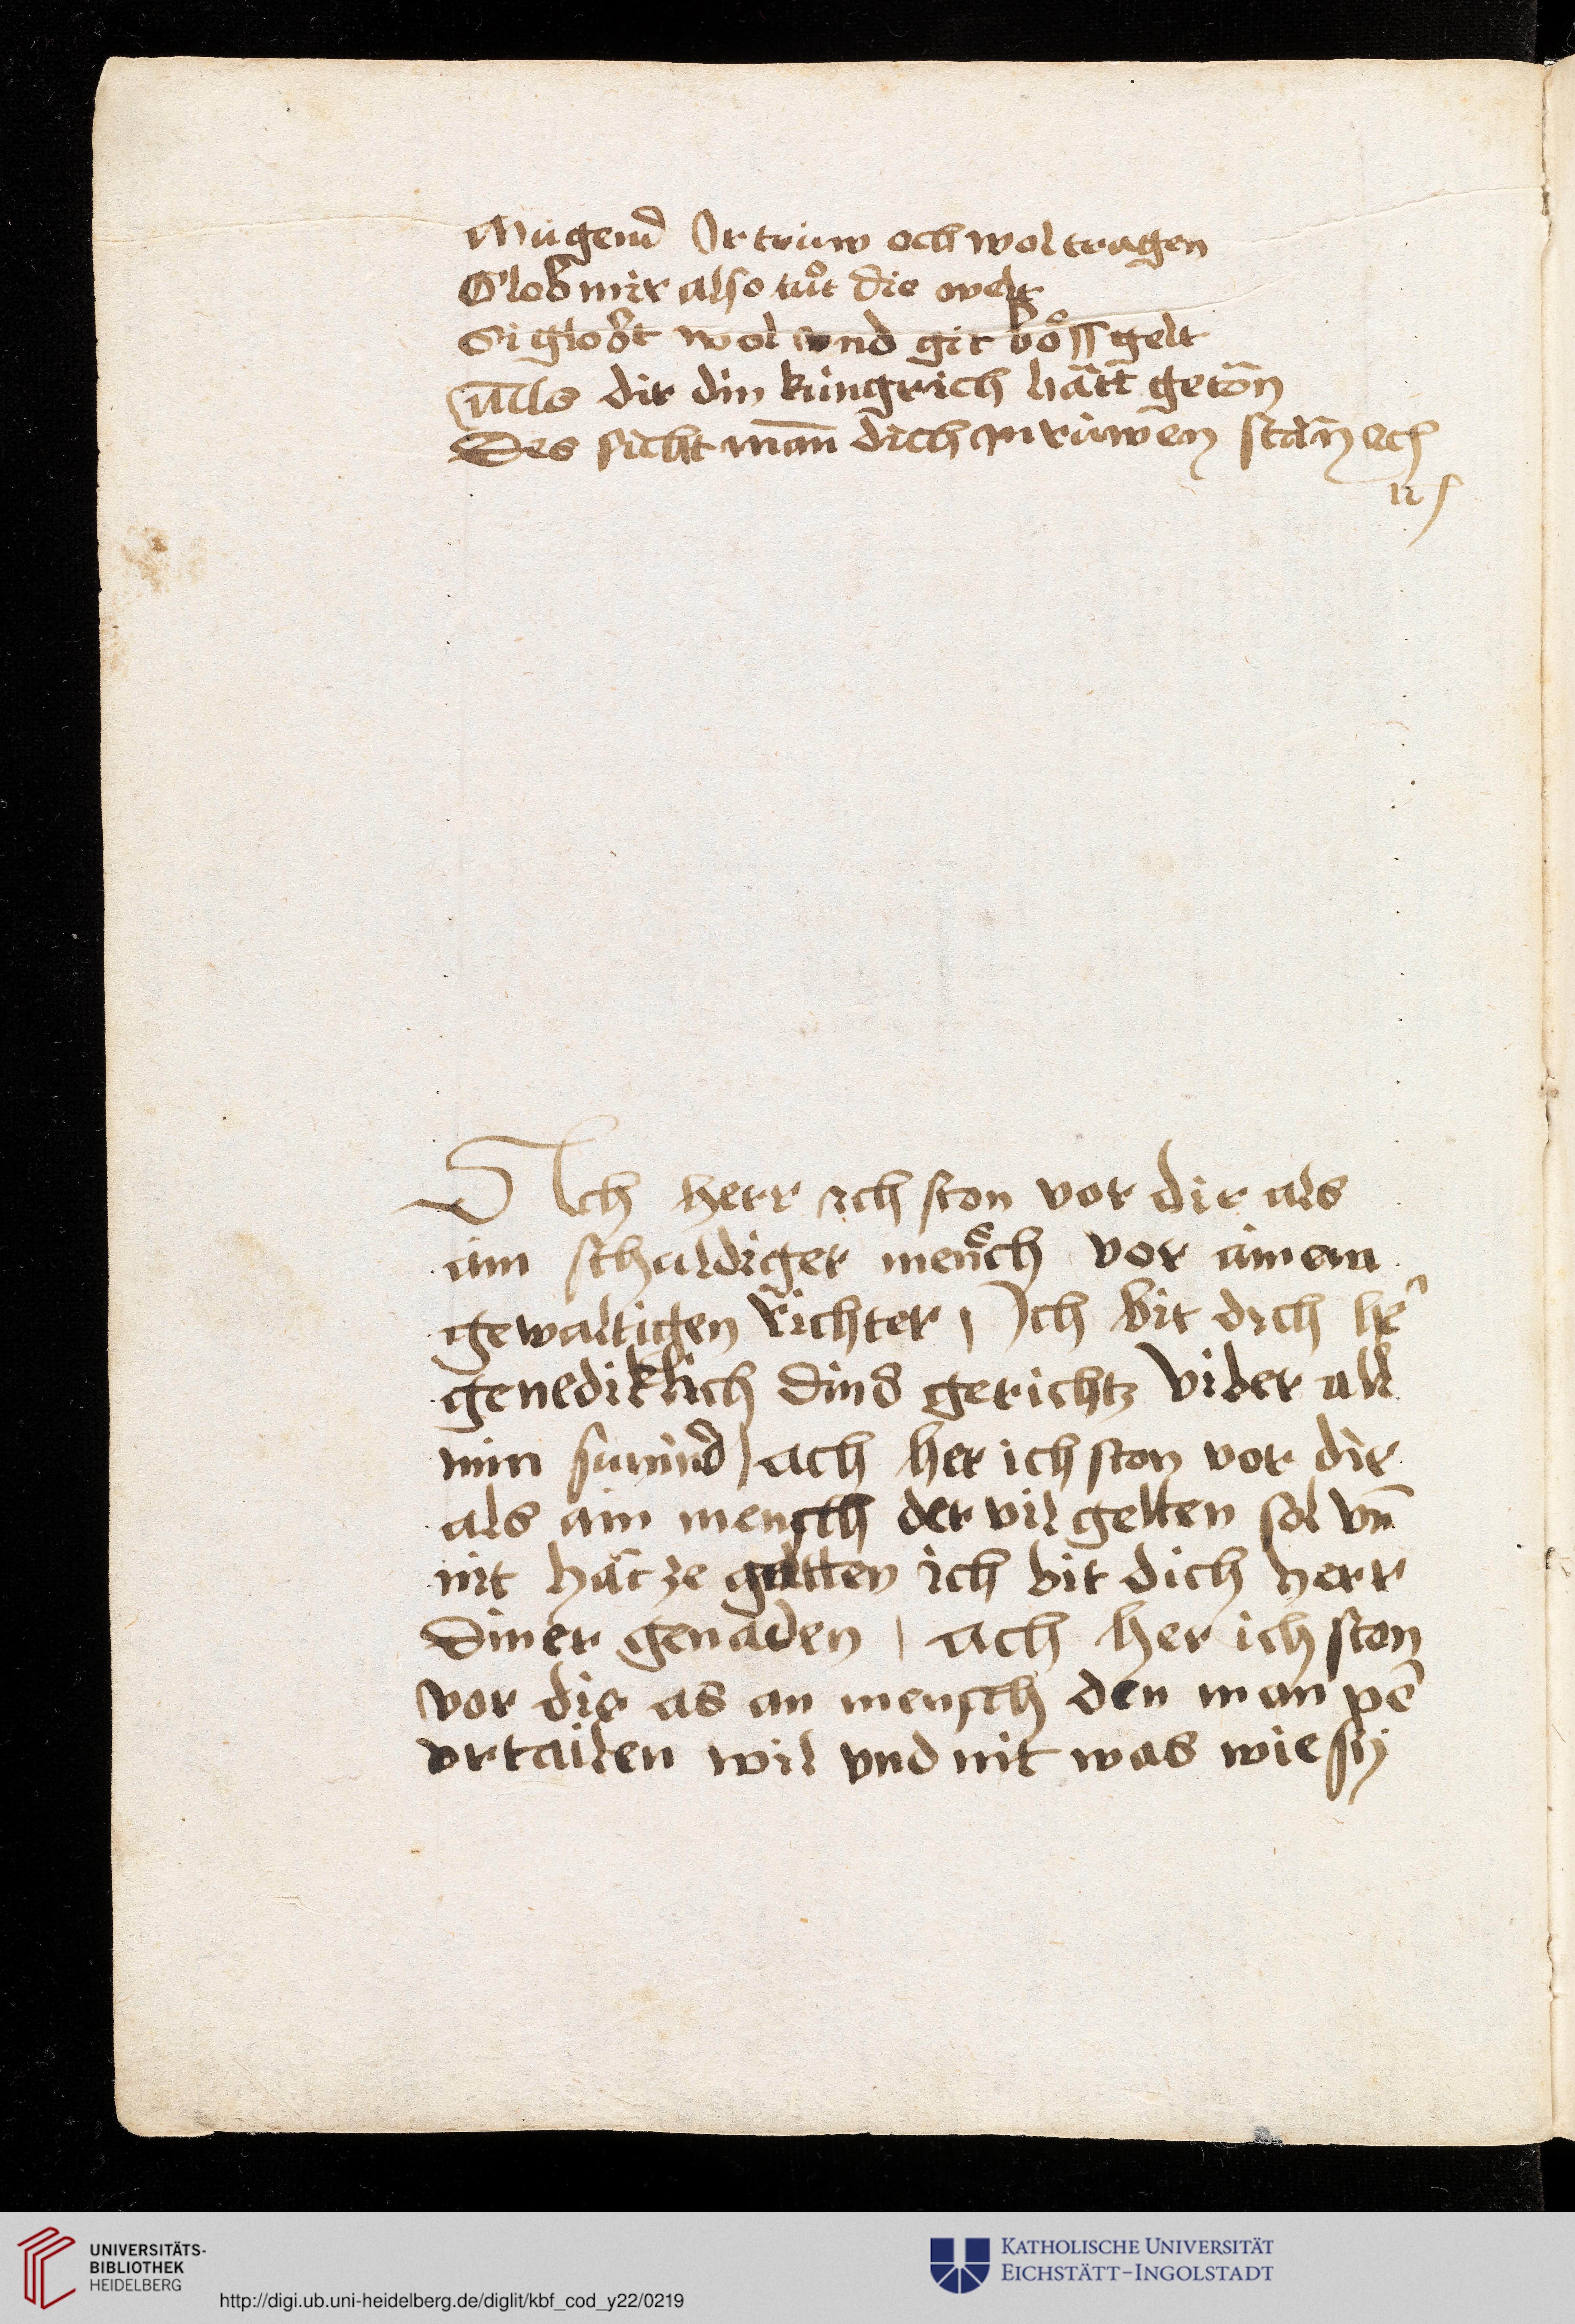 Mügend Ir trüw och wol tragen
Glob mir also tuͦt die welt
Si globt wol vnd git boͤss gelt
Als dir din küngrich hätt getön
Des sicht man dich in rüwen stän ec
Ach herr ich ston vor dir als
ain schuldiger mensch vor ainem
gewaltigen Richter / Ich bit dich he
genediklich dins gerichtz vber all
min sünnd / ach her ich ston vor dir
als ain mensch der vil gelten sol vn̄
nit hät ze gelten ich bit dich herr
diner genaden / ach her ich ston
vor dir as an mensch den man
vrtailen wil vnd nit was wie sy
UNIVERSITÄTS-
BIBLIOTHEK
HEIDELBERG
http://digi.ub.uni-heidelberg.de/diglit/kbf_cod_y22/0219
KATHOLISCHE UNIVERSITÄT
EICHSTÄTT-INGOLSTADT